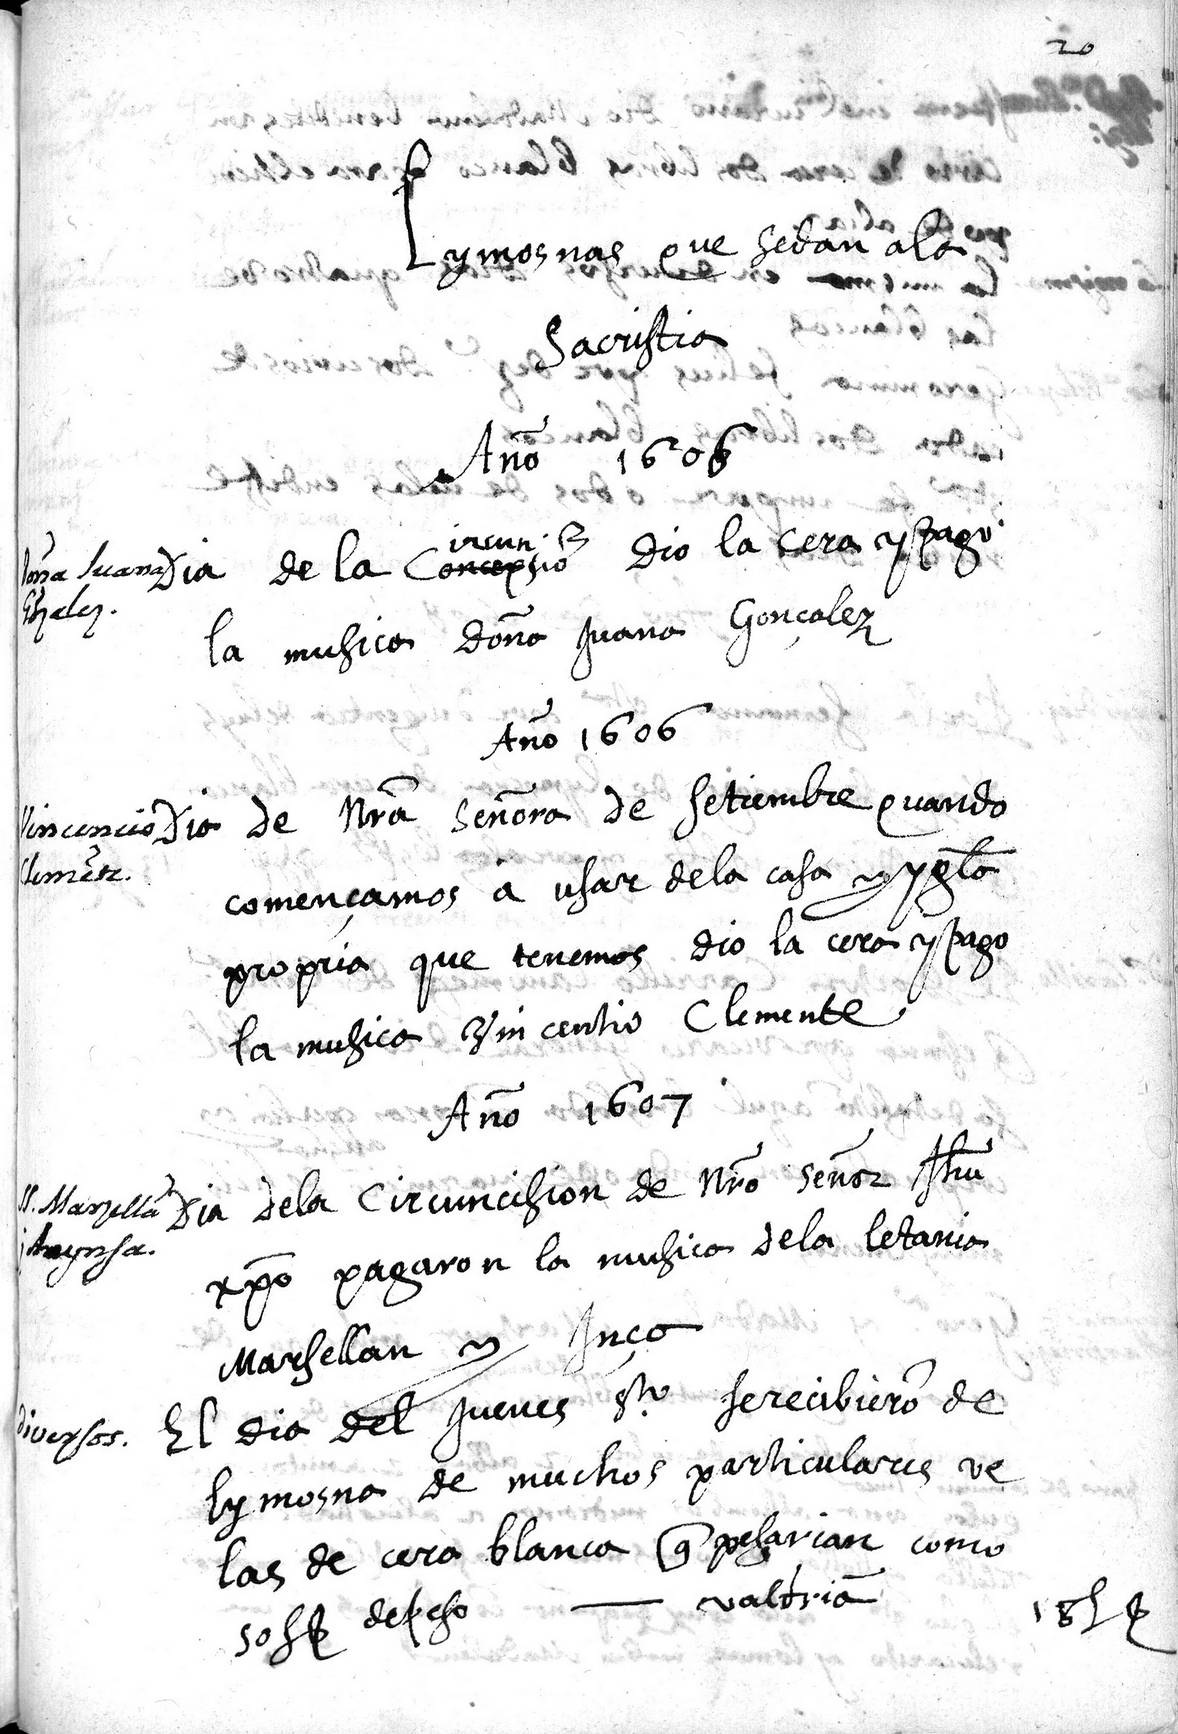 20
Lymosnas que sedan ala
Sacristia
Año 1606
Doña Juana Dia de la Concepsio ircun. dio la cera y pago
Gzalez.
la musica doña Juana Gonçalez
Año 1606
Vincencio Dia de Nra Señora de setiembre quando
Clemēte.
començamos a usar dela casa y ygla
propria que tenemos dio la cera y pago
la musica Vincentio Clemente
Año 1607
M. Marsellā Dia dela Circuncision de Nro Señor Jhu
i Aynsa.
xpo pagaron la musica dela letania
Marsellan y
diversos. El dia del Jueves Sto se recibierō de
lymosna de muchos particulares ve
las de cera blanca q pesarian como
50 depeso — valdriā 18